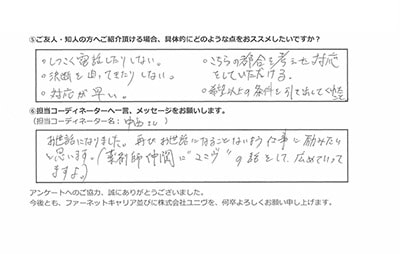 ⑤ご友人・知人の方へご紹介頂ける場合、具体的にどのような点をおススメしたいですか？
・しつこく電話したりしない。
・決断を迫ってきたりしない。
・対応が早い。
・こちらの都合を考えた対応
をしていただける。
・希望以上の条件を引き出してくれる
⑥担当コーディネーターへ一言、メッセージをお願いします。
（担当コーディネーター名：中西さん）
お世話になりました。再びお世話になることないよう仕事に励みたい
と思います。（薬剤師仲間に"ユニヴ"の話をして、広めていって
ますよ。）
アンケートへのご協力、誠にありがとうございました。
今後とも、ファーネットキャリア並びに株式会社ユニヴを、何卒よろしくお願い申し上げます。